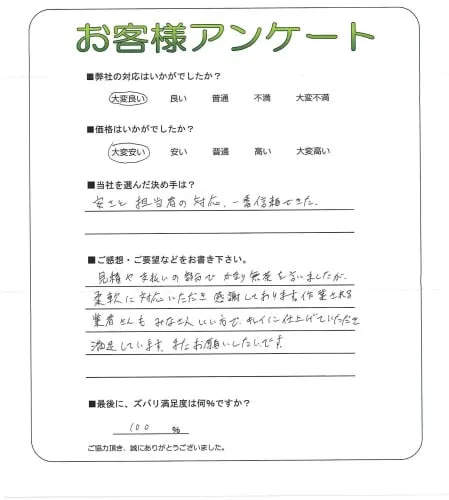 お客様アンケート
■弊社の対応はいかがでしたか?
大変良い 良い 普通 不満 大変不満
■価格はいかがでしたか?
大変安い 安い 普通 高い 大変高い
■当社を選んだ決め手は?
安さと担当者の対応、一番信頼できた。
■ご感想・ご要望などをお書き下さい。
見積や支払いの部分でかなり無理を言いましたが、
柔軟に対応いただき感謝しております。作業される
業者さんもみなさんいい方で、キレイに仕上げていただき
満足しています。またお願いしたいです。
■最後に、ズバリ満足度は何%ですか?
100 %
ご協力頂き、誠にありがとうございました。